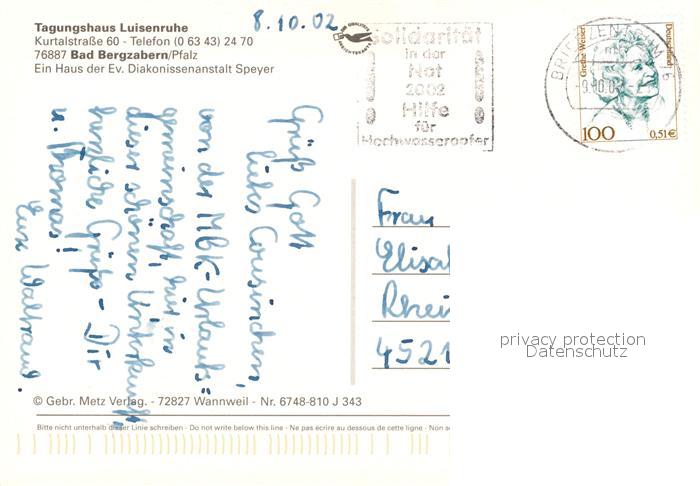 8.10.02
Tagungshaus Luisenruhe
Kurtalstraße 60 - Telefon (0 63 43) 24 70
76887 Bad Bergzabern/Pfalz
Ein Haus der Ev. Diakonissenanstalt Speyer
Solidarität
in der
Not
2002
Hilfe
für
Hochwasseropfer
BRIEFZENTRUM 76
Grethe Weiser
Deutschland
100
0,51€
Grüß Gott
liebes Cousinchen,
von der MBK-Urlaubs=
gemeinschaft hier in
dieser schönen Unterkunft,
herzliche Grüße - Dir
u. Thomas!
Eure Waltraud.
Frau
Elisa
Rhei
4521
privacy protection
Datenschutz
© Gebr. Metz Verlag. - 72827 Wannweil - Nr. 6748-810 J 343
Bitte nicht unterhalb dieser Linie schreiben - Do not write below this line - Ne pas écrire au dessous de cette ligne - Non s